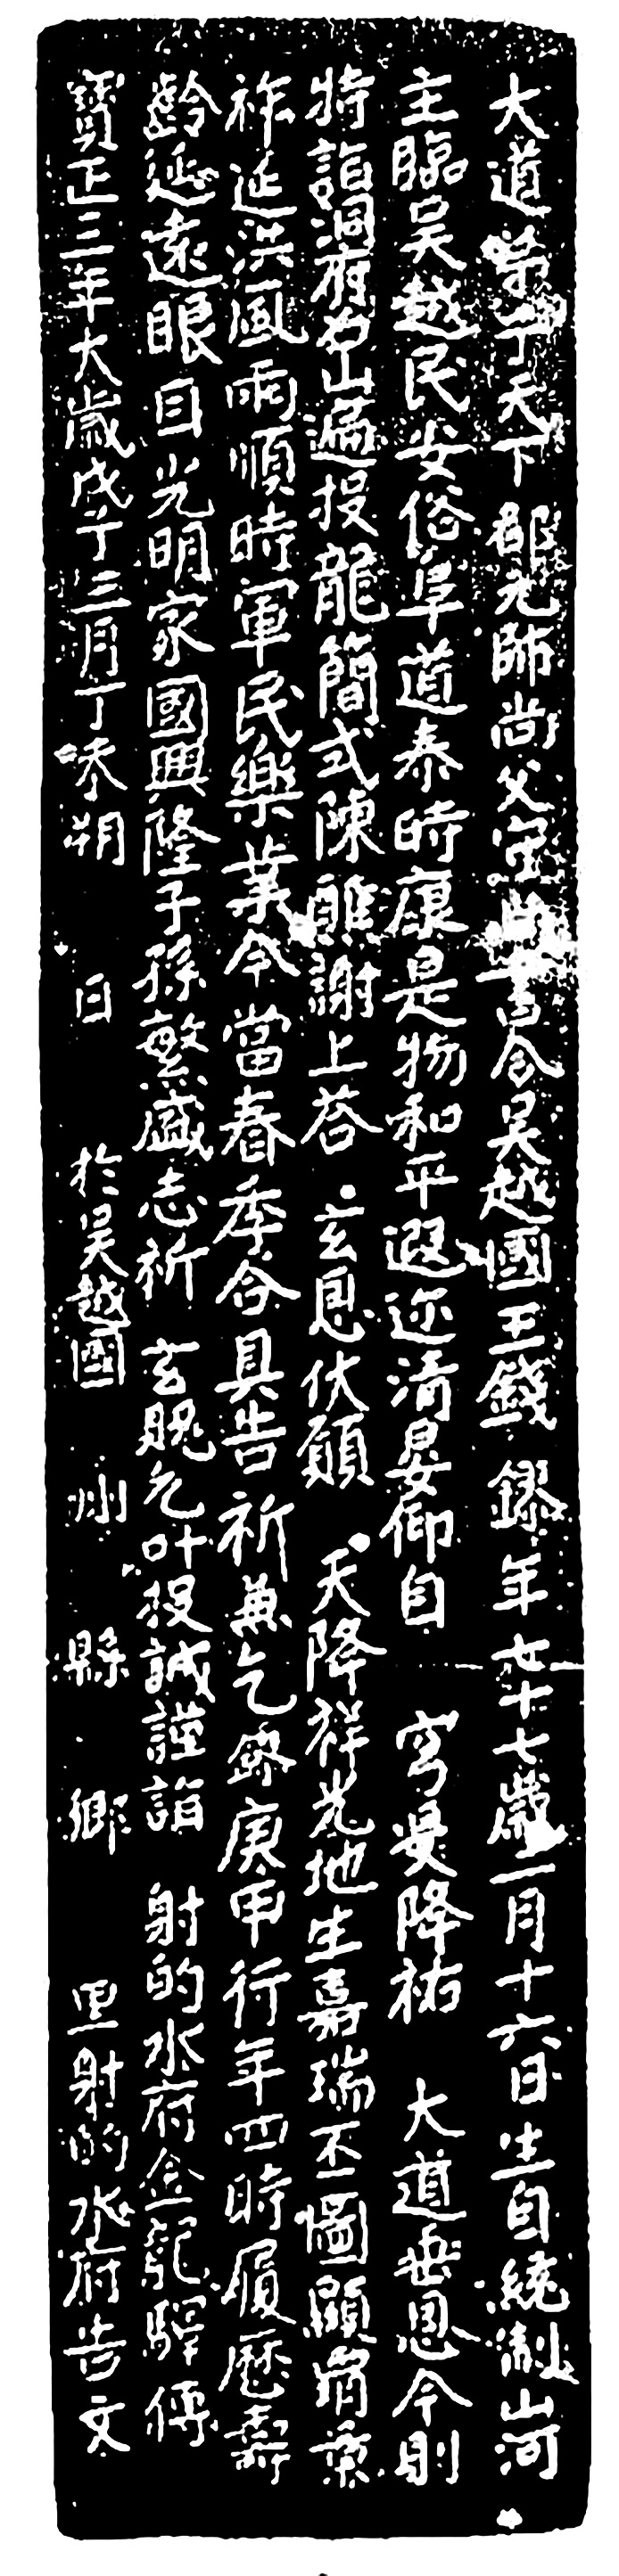 大道弟子天下都元帥尚父守中書令吳越國王錢鏐年七十七歲二月十六日生自統制山河
主臨吳越民安俗阜道泰時康是物和平遐迩清晏仰自 穹旻降祐 大道垂恩今則
特詣洞府名山遍投龍簡式陳醮謝上荅 玄恩伏願 天降祥光地生嘉瑞丕圖顯霸葉
祚延洪風雨順時軍民樂業今當春季合具告祈兼乞鏐庚甲行年四時履歷壽
齡延遠眼目光明家國興隆子孫繁盛志祈 玄貺允叶投誠謹詣 射的水府金龍驛傳
寶正三年大歲戊子三月丁未朔 日 於吳越國 州 縣 鄉 里射的水府告文